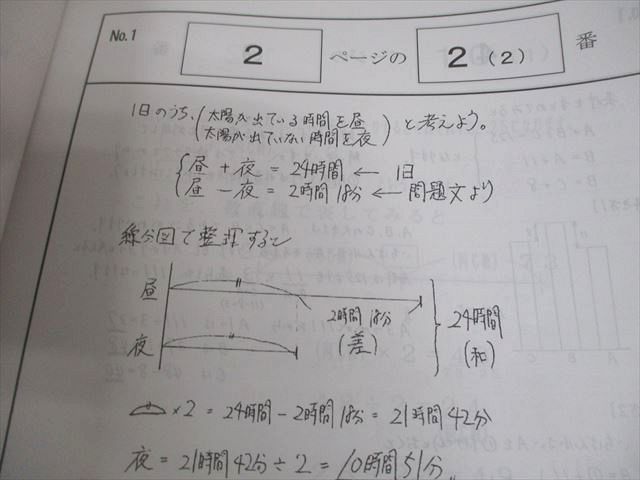 No.1
2 ページの 2(2) 番
1日のうち、(太陽が出ている時間を昼
太陽が出ていない時間を夜) と考えよう。
{昼 + 夜 = 24時間 ← 1日
昼 - 夜 = 2時間18分 ← 問題文より
線分図で整理すると
昼
2時間18分
(差)
24時間
(和)
夜
×2 = 24時間 - 2時間18分 = 21時間42分
夜 = 21時間42分 ÷ 2 = 10時間51分